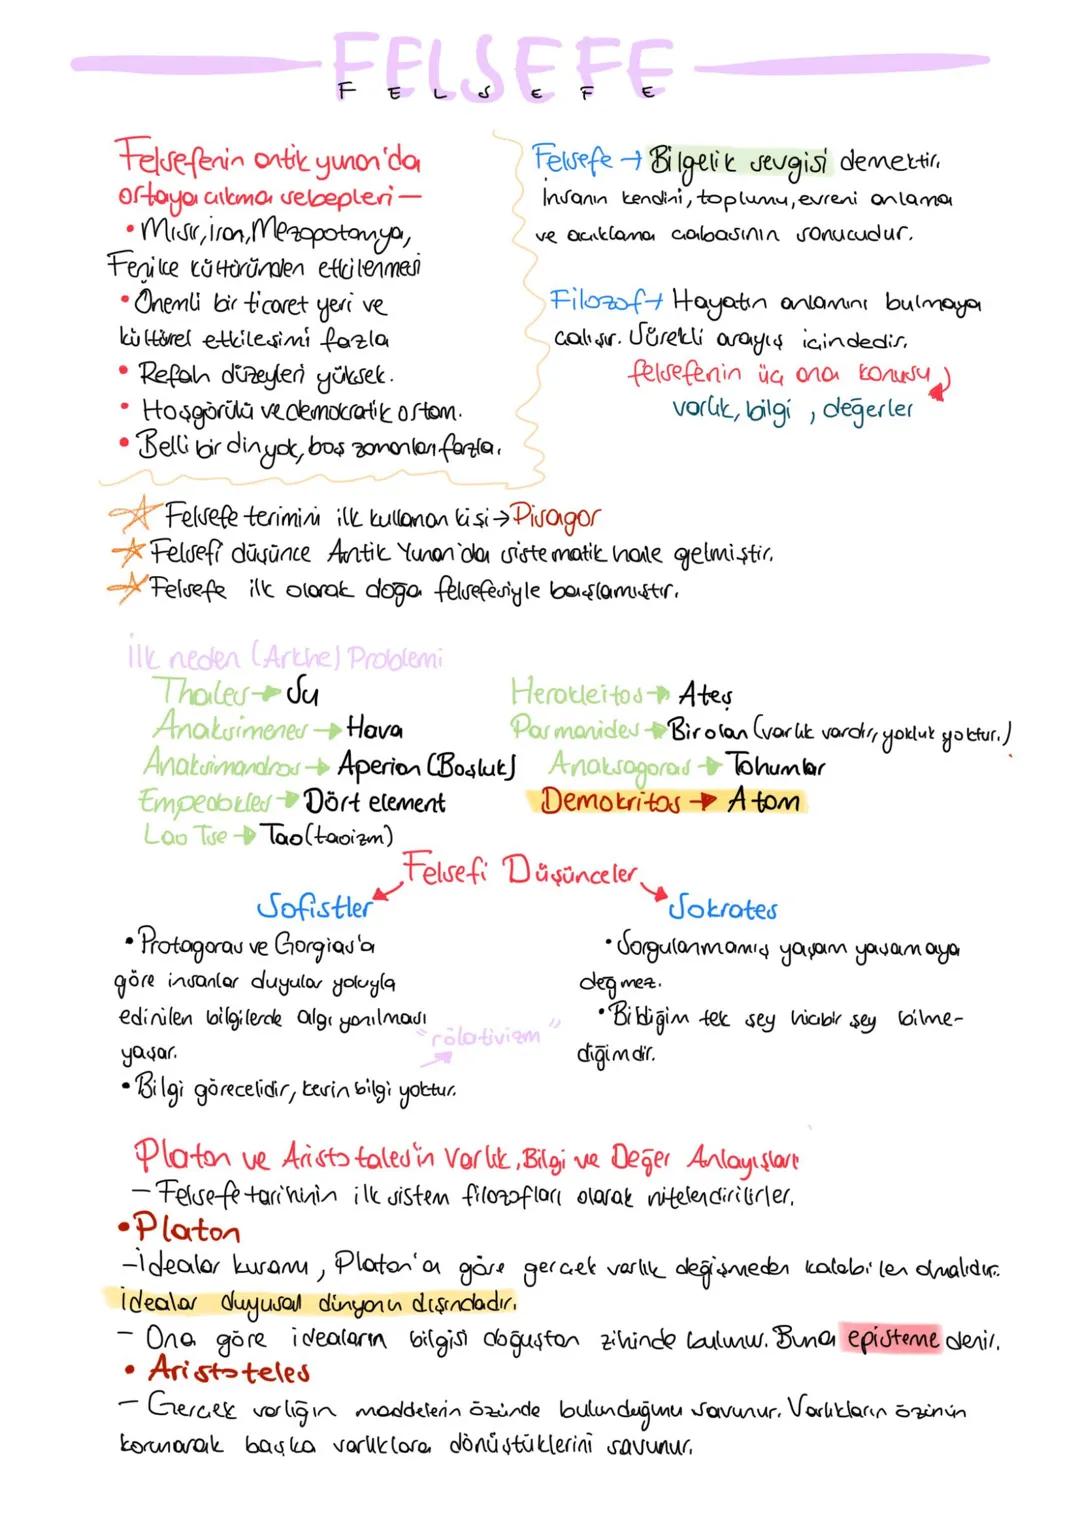 FELSEFE
FELSEFE
Felsefenin antik yunan'da
ortaya çıkma sebepleri —
• Mısır, İran, Mezopotamya,
Fenike kültüründen etkilenmesi
• Önemli bir ticaret yeri ve
kültürel etkileşimi fazla
• Refah düzeyleri yüksek.
• Hoşgörülü ve demokratik ortam.
• Belli bir din yok, boş zamanları fazla.
Felsefe → Bilgelik sevgisi demektir.
İnsanın kendini, toplumu, evreni anlama
ve açıklama çabasının sonucudur.
Filozof → Hayatın anlamını bulmaya
çalışır. Sürekli arayış içindedir.
felsefenin üç ana konusu
varlık, bilgi, değerler
☆ Felsefe terimini ilk kullanan kişi → Pisagor
☆ Felsefi düşünce Antik Yunan'da sistematik hale gelmiştir.
☆ Felsefe ilk olarak doğa felsefesiyle başlamıştır.
İlk neden (Arkhe) Problemi
Thales → Su
Anaksimenes → Hava
Anaksimandros → Aperion (Boşluk)
Empedokles → Dört element
Lao Tse → Tao (taoizm)
Herakleitos → Ateş
Parmanides → Bir olan (varlık vardır, yokluk yoktur.)
Anaksagoras → Tohumlar
Demokritos → Atom
Felsefi Düşünceler
Sofistler
• Protagoras ve Gorgias'a
göre insanlar duyular yoluyla
edinilen bilgilerde algı yanılması
yaşar.
• Bilgi görecelidir, kesin bilgi yoktur.
"rölativizm"
Sokrates
• Sorgulanmamış yaşam yaşamaya
değmez.
• Bildiğim tek şey hiçbir şey bilme-
diğimdir.
Platon ve Aristotales'in Varlık, Bilgi ve Değer Anlayışları
— Felsefe tarihinin ilk sistem filozofları olarak nitelendirilirler.
• Platon
— İdealar kuramı, Platon'a göre gerçek varlık değişmeden kalabilen olmalıdır.
İdealar duyusal dünyanın dışındadır.
— Ona göre ideaların bilgisi doğuştan zihinde bulunur. Buna episteme denir.
• Aristoteles
— Gerçek varlığın maddelerin özünde bulunduğunu savunur. Varlıkların özünün
korunarak başka varlıklara dönüştüklerini savunur.